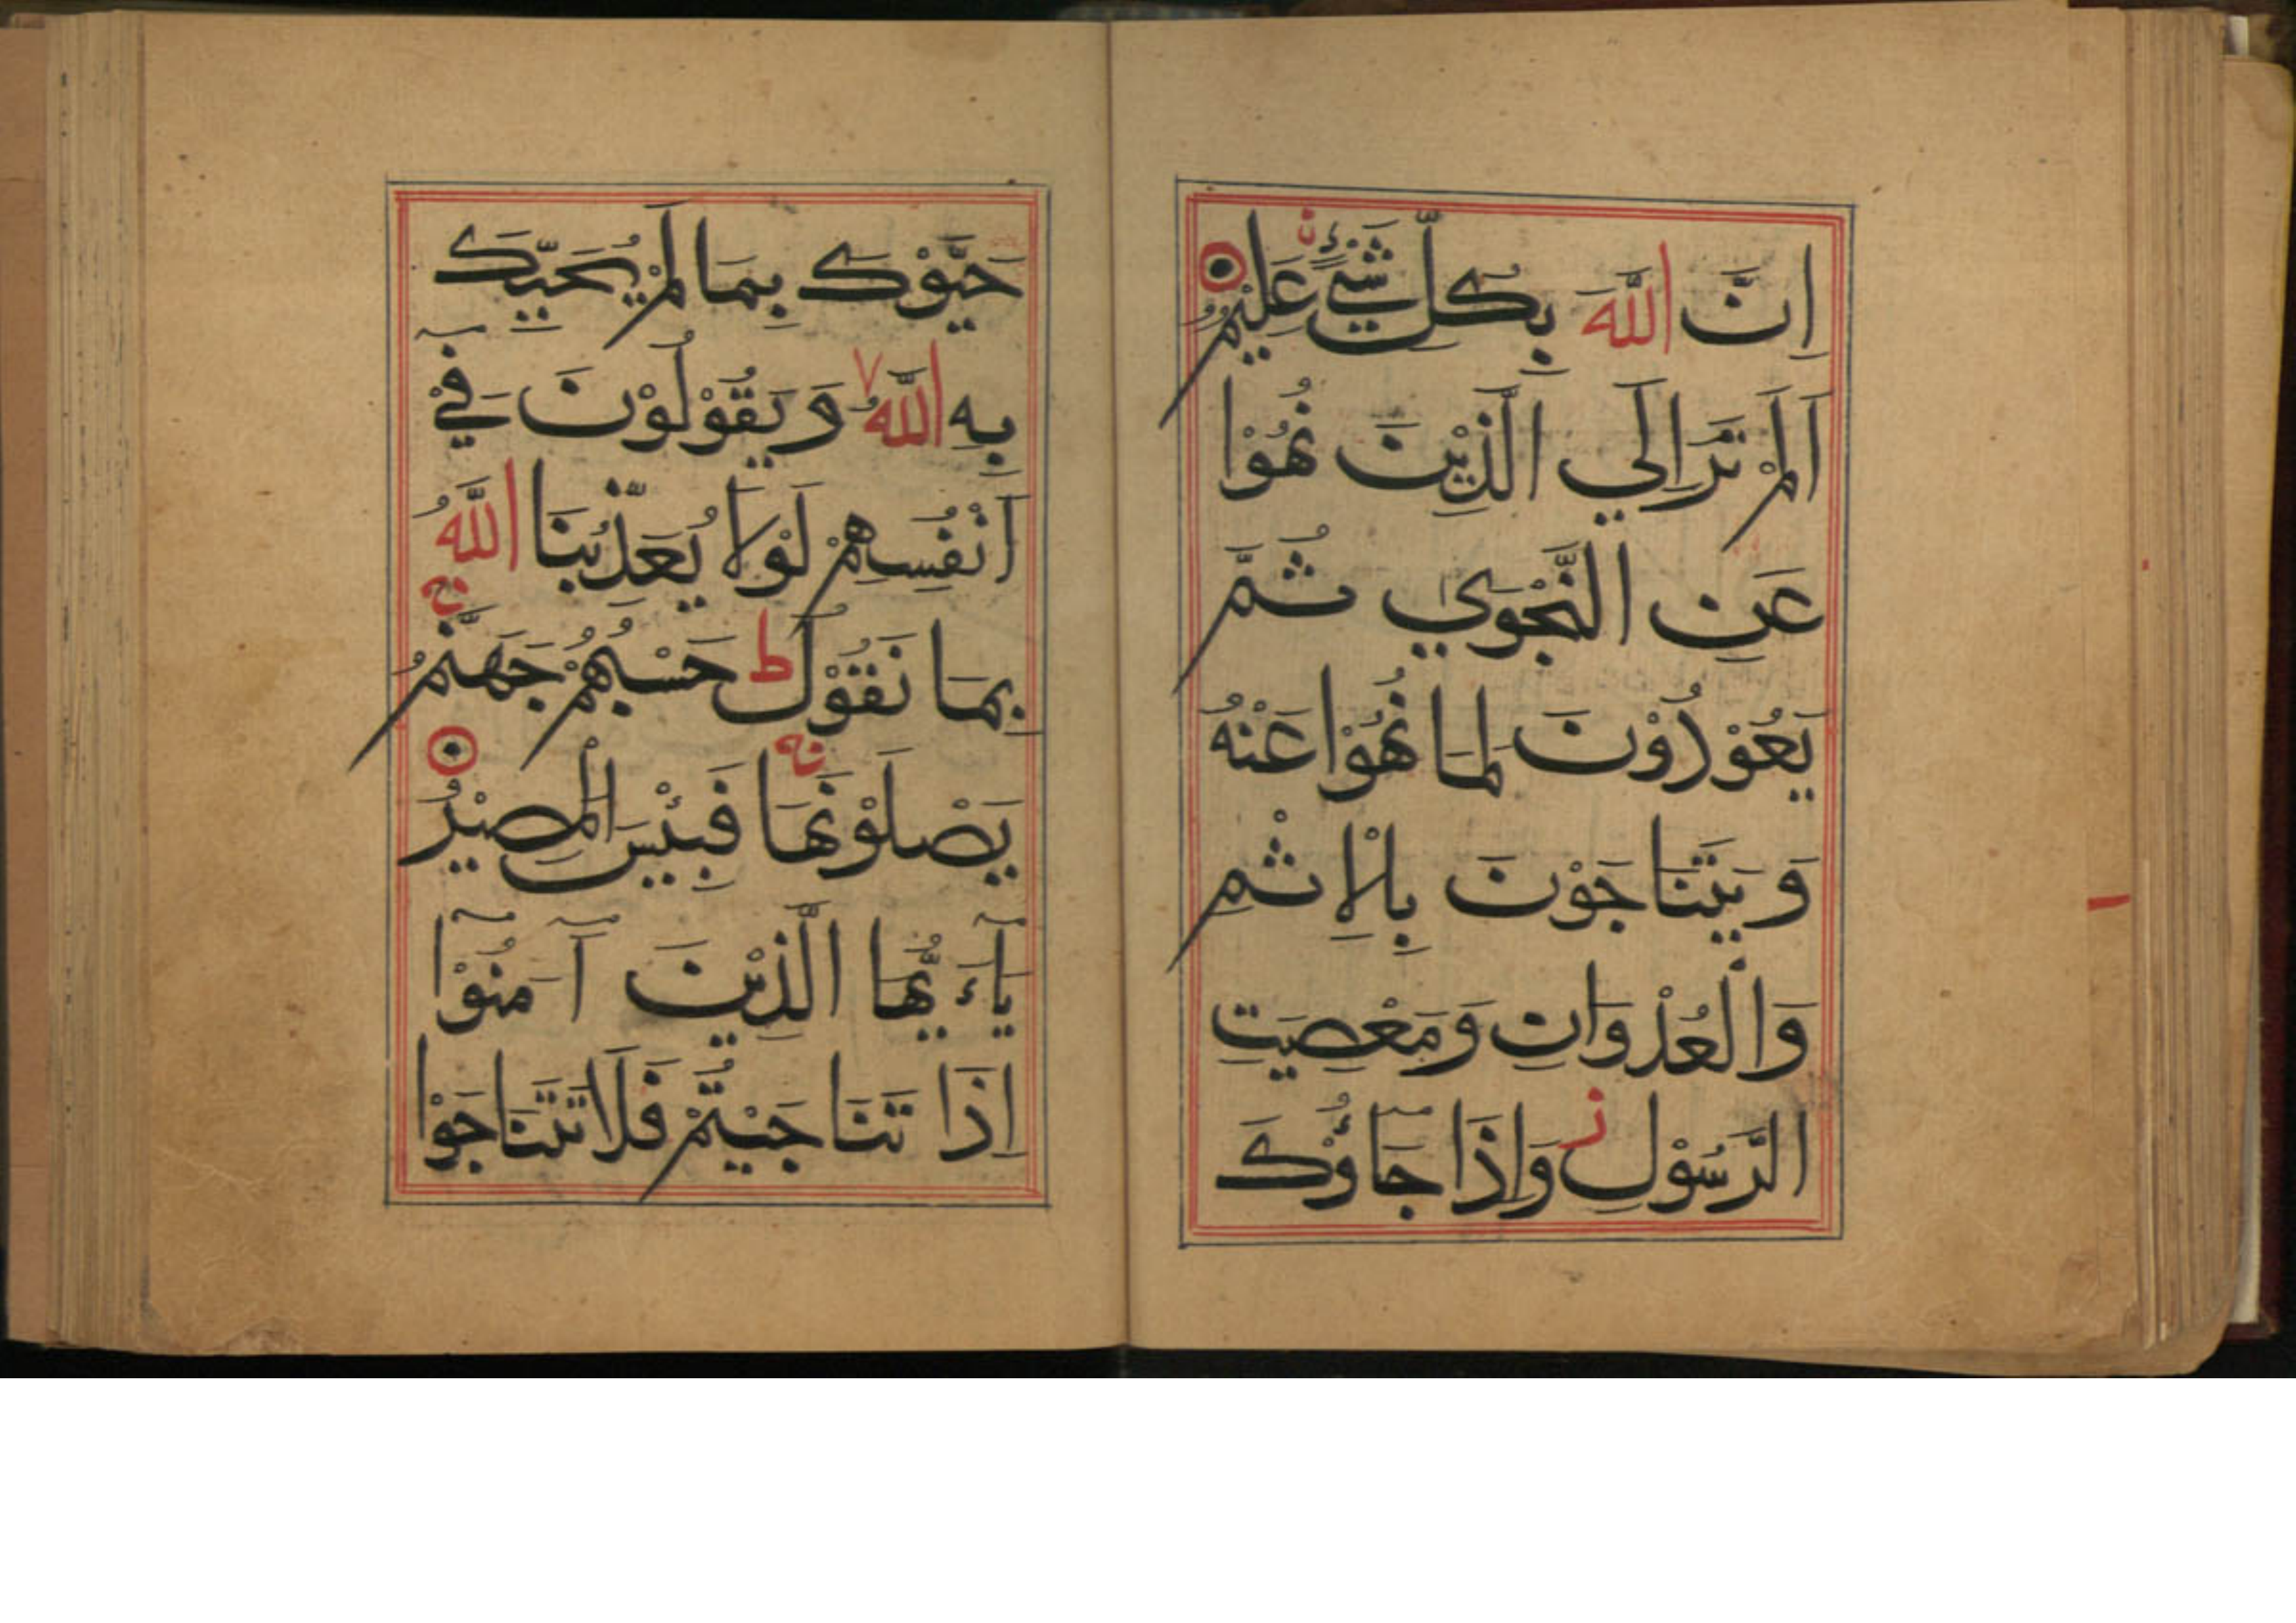 اِنَّ اللّٰهَ بِكُلِّ شَيْءٍ عَلِيْمٌ
اَلَمْ تَرَ اِلَي الَّذِيْنَ نُهُوْا
عَنِ النَّجْوٰي ثُمَّ
يَعُوْدُوْنَ لِمَا نُهُوْا عَنْهُ
وَيَتَنَاجَوْنَ بِالْاِثْمِ
وَالْعُدْوَانِ وَمَعْصِيَتِ
الرَّسُوْلِ ز وَاِذَا جَآؤُكَ
حَيَّوْكَ بِمَا لَمْ يُحَيِّكَ
بِهِ اللّٰهُ وَيَقُوْلُوْنَ فِيْٓ
اَنْفُسِهِمْ لَوْلَا يُعَذِّبُنَا اللّٰهُ
بِمَا نَقُوْلُ ط حَسْبُهُمْ جَهَنَّمُ ج
يَصْلَوْنَهَا ج فَبِئْسَ الْمَصِيْرُ
يَآءَيُّهَا الَّذِيْنَ آمَنُوْآ
اِذَا تَنَاجَيْتُمْ فَلَا تَتَنَاجَوْا